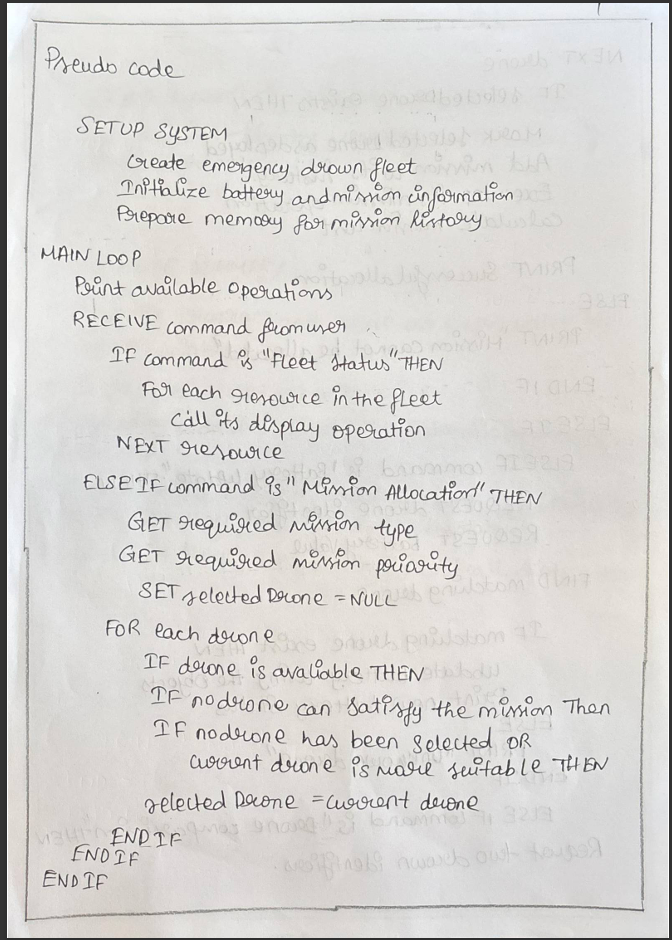 Pseudo code
SETUP SYSTEM
Create emergency drown fleet
Initialize battery and mission information
Prepare memory for mission listory
MAIN LOOP
Print available operations
RECEIVE command from user
IF command is "fleet status" THEN
For each resource in the fleet
Call its display operation
NEXT resource
ELSE IF command is "Mission Allocation" THEN
GET required mission type
GET required mission priority
SET selected Drone = NULL
FOR each drone
IF drone is avaliable THEN
IF nodrone can satisfy the mission Then
IF nodrone has been selected OR
current drone is more suitable THEN
selected Drone = current drone
END IF
END IF
END IF